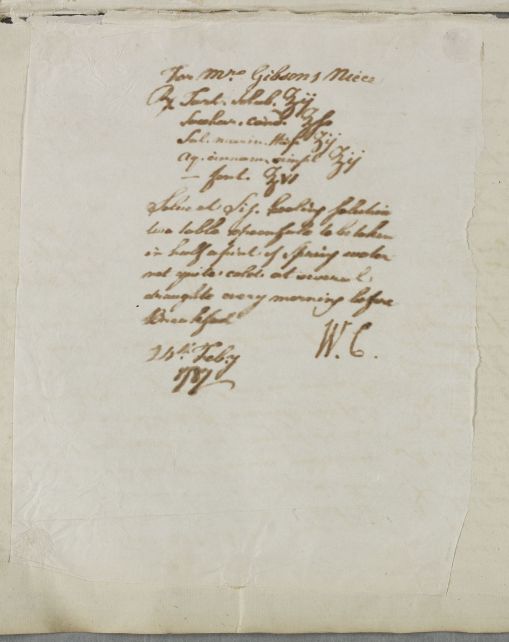 For Mrs Gibsons Niece
℞ Tart. solub. ℥ij
Sacchar. cand. ℥ss
Sal. marin. Hisp. ʒij
Aq. cinnam. simpl. ℥ij
— font. ℥vi
Solve et Sig. Cooling Solution
two table spoonfuls to be taken
in half a pint of spring water
not quite cold at several
draughts every morning before
Breakfast
W. C.
24th. Feb.y
1787